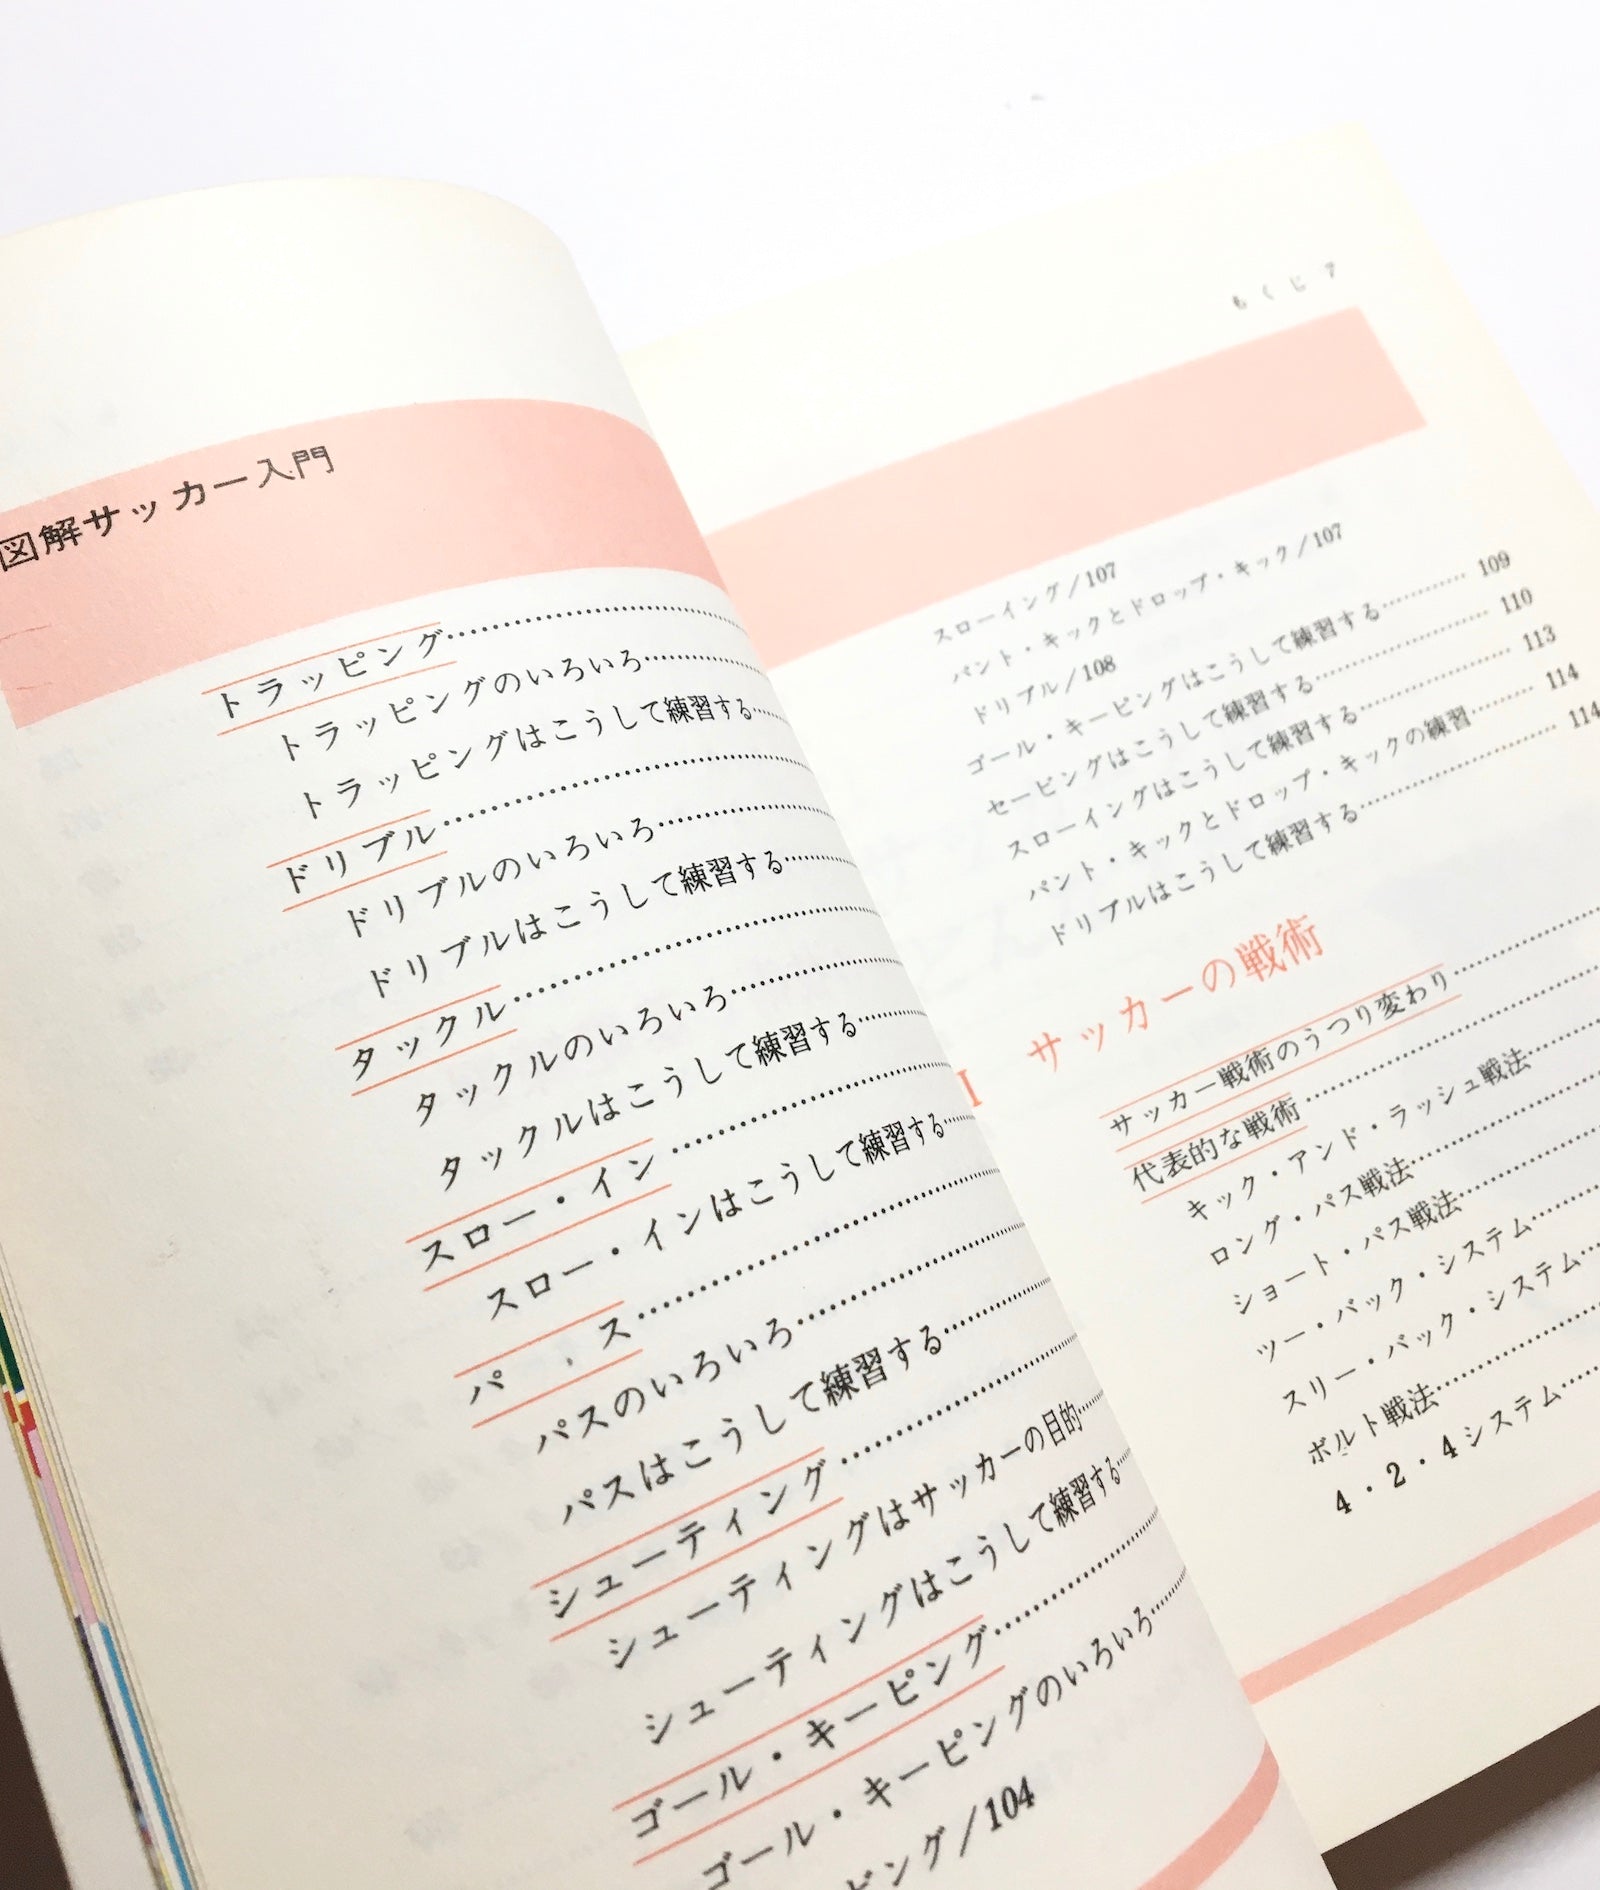 図解サッカー入門
トラッピング
トラッピングのいろいろ
トラッピングはこうして練習する
ドリブル
ドリブルのいろいろ
ドリブルはこうして練習する
タックル
タックルのいろいろ
タックルはこうして練習する
スロー・イン
スロー・インはこうして練習する
パス
パスのいろいろ
パスはこうして練習する
シューティング
シューティングはサッカーの目的
シューティングはこうして練習する
ゴール・キーピング
ゴール・キーピングのいろいろ
ピング/104
もくじ 7
スローイング/107
パント・キックとドロップ・キック/107
ドリブル/108
ゴール・キーピングはこうして練習する 109
セービングはこうして練習する 110
スローイングはこうして練習する 113
パント・キックとドロップ・キックの練習 114
ドリブルはこうして練習する 114
I サッカーの戦術
サッカー戦術のうつり変わり
代表的な戦術
キック・アンド・ラッシュ戦法
ロング・パス戦法
ショート・パス戦法
ツー・バック・システム
スリー・バック・システム
ボルト戦法
4・2・4システム